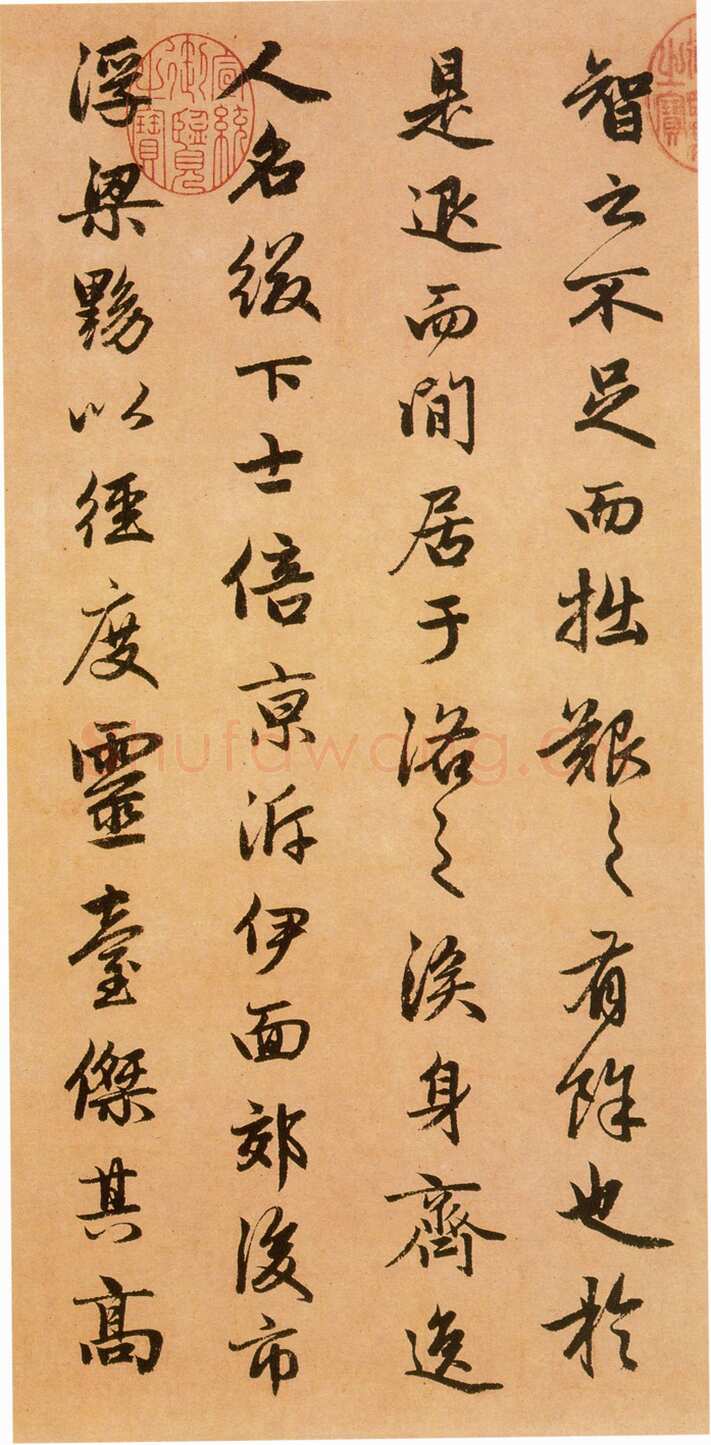 智之不足而拙艱之有餘也於
是退而閒居于洛之涘身齊逸
人名綴下士倍京泝伊面郊後市
浮梁黝以徑度靈臺傑其高
宣統御覽之寶
之寶
Shufawang.c